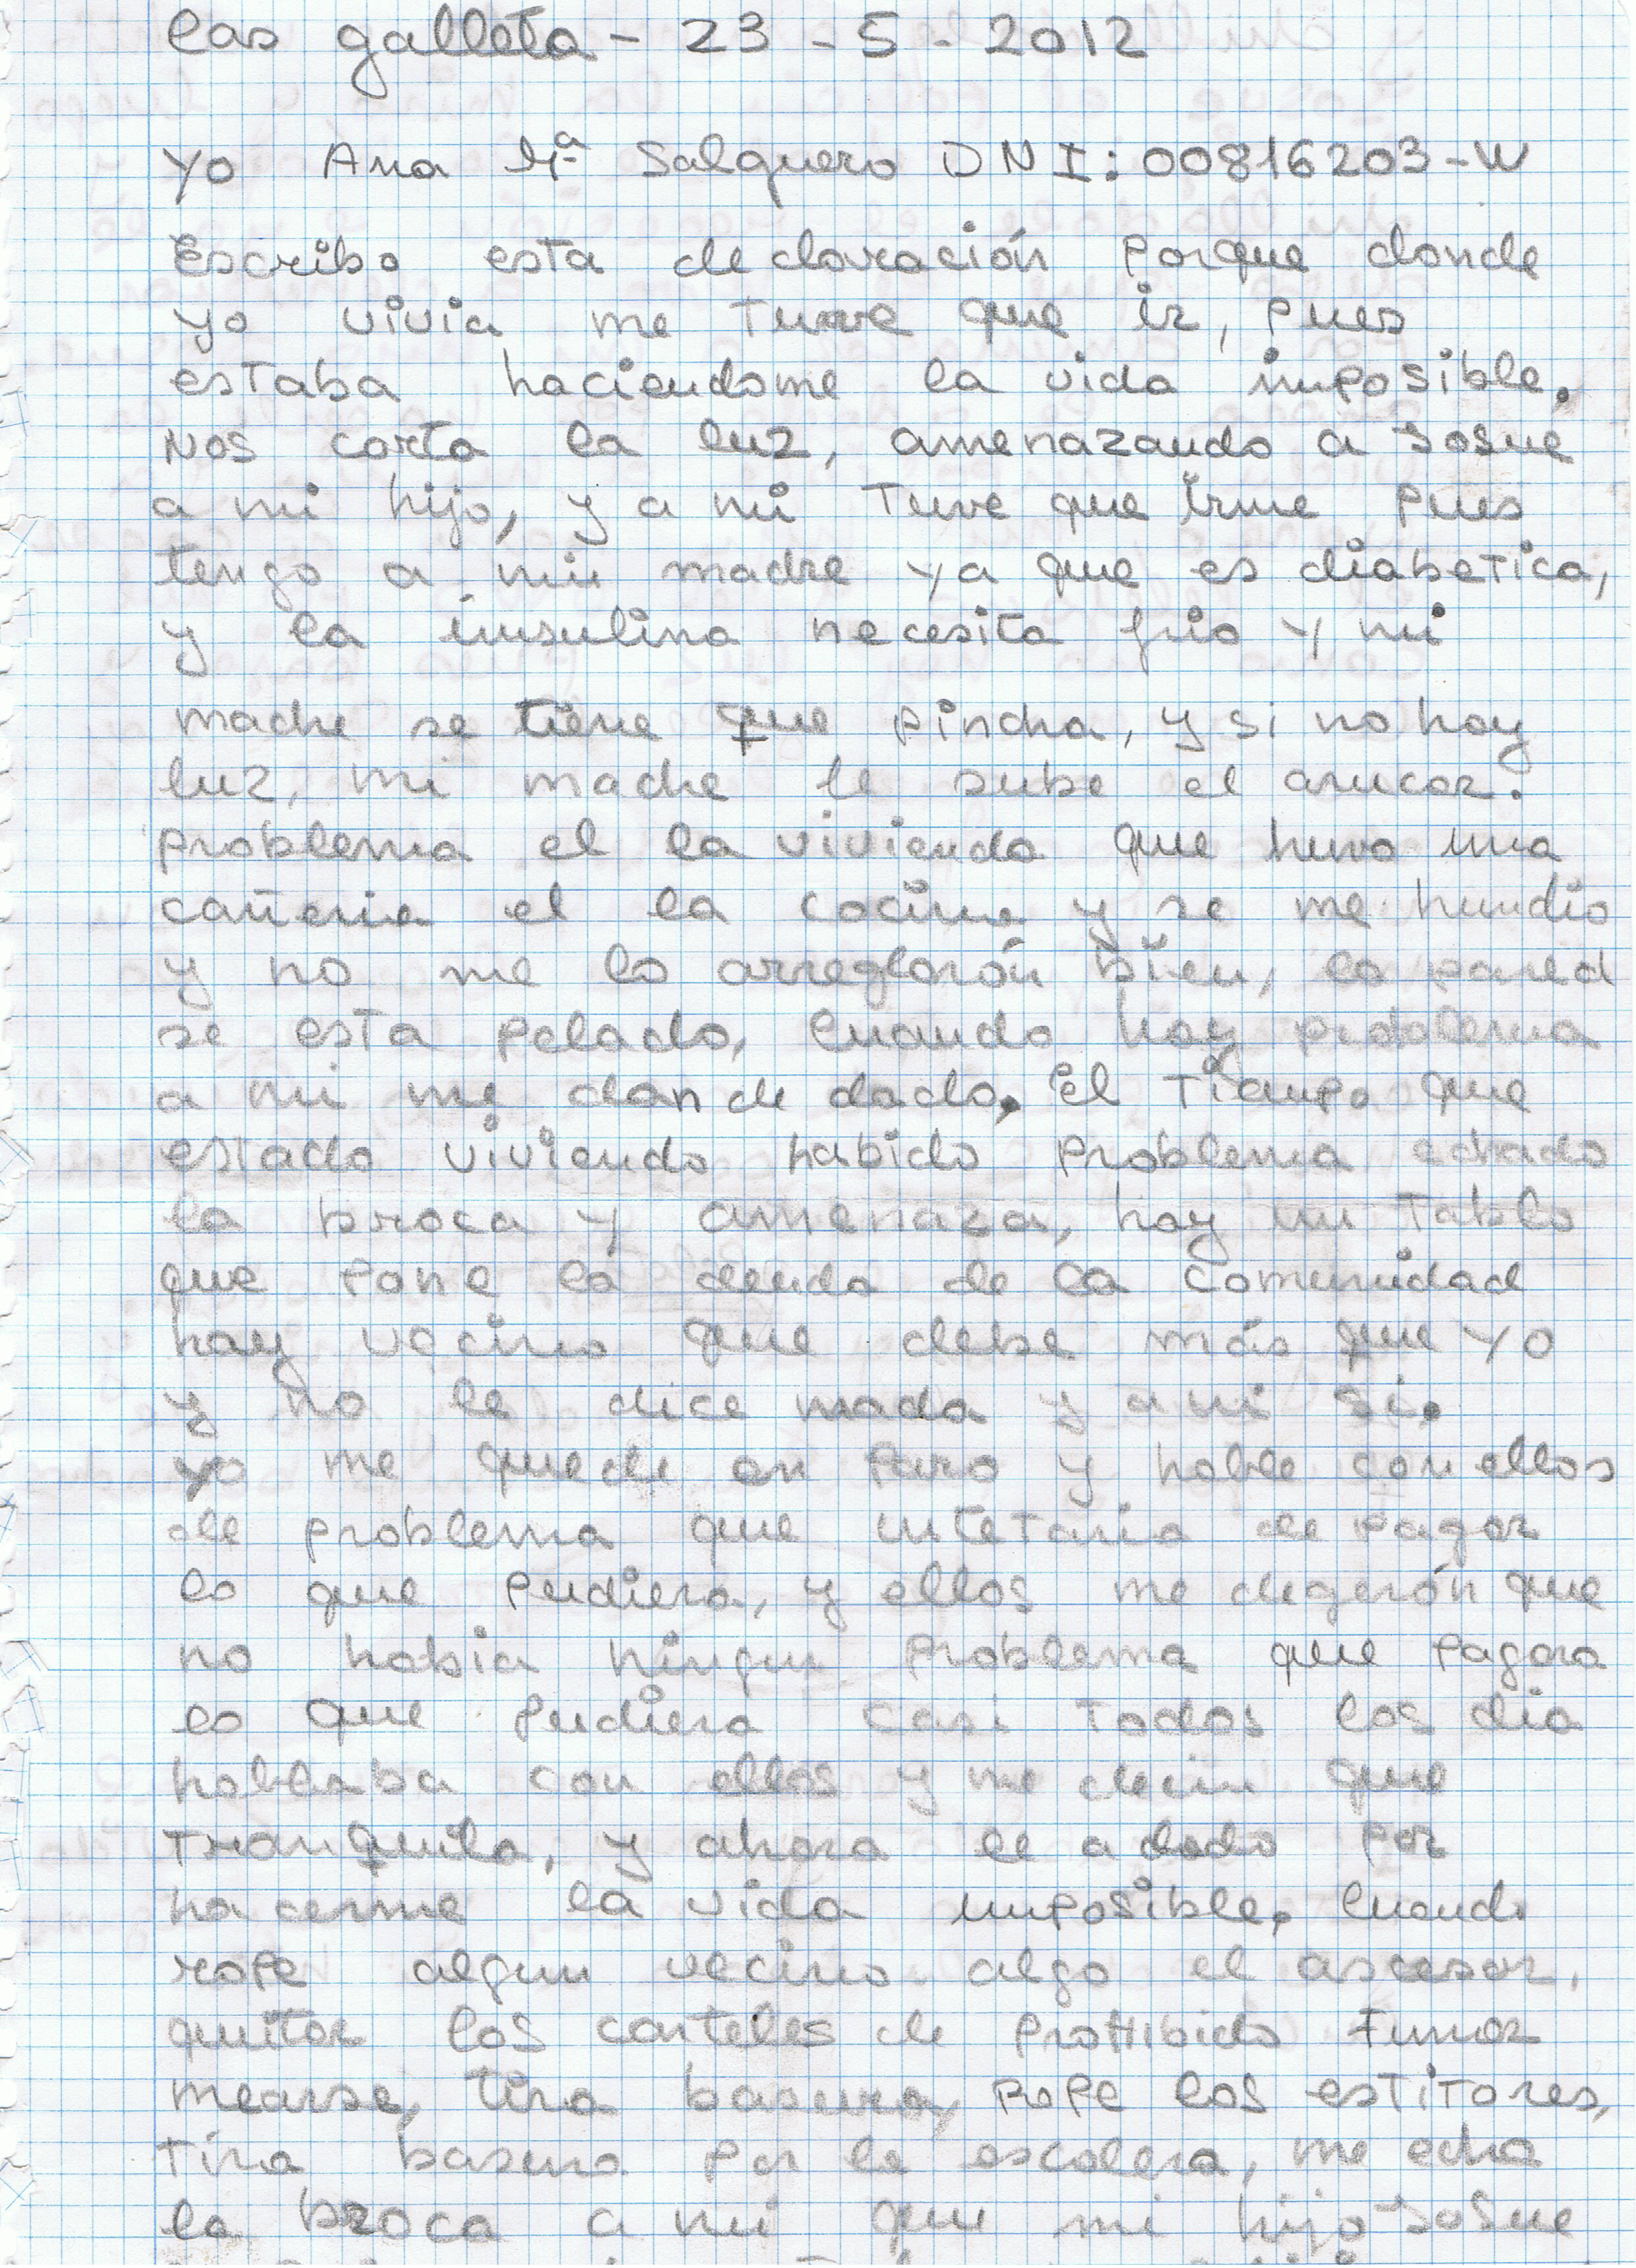 las galleta - 23 - 5 - 2012
yo Ana Mª Salguero DNI: 00816203-W
Escribo esta declaración Porque donde
yo vivia me Tuve que ir, Pues
estaba haciendome la vida imposible.
Nos corta la luz, amenazando a Josue
a mi hijo, y a mi Tuve que irme Pues
tengo a mi madre ya que es diabetica,
y la insulina necesita frio y mi
madre se tiene que pincha, y si no hay
luz, mi madre le sube el azucar.
Problema el la vivienda que huvo una
cañeria el la cocina y se me hundio
y no me lo arreglarón bien, la pared
se esta pelado, Cuando hay problema
a mi me dan de dado. El Tiempo que
estado viviendo habido Problema echado
la broca y amenaza, hay un Tablo
que Pone la deuda de la comunidad
hay vecino que debe más que yo
y no le dice nada y a mi si.
yo me quede an Paro y hable con ellos
de problema que intetaria de Pagar
lo que Pudiera, y ellos me degerón que
no habia ningun Problema que Pagara
lo que Pudiera casi Todos los dia
hablaba con ellos y me decin que
Tranquila, y ahora le a dado por
hacerme la vida imposible. Cuando
rope algun vecino algo el ascesor,
quitar los carteles de Prohibido Fumar
mearse, tira basura, rope los estitores,
Tira basura por la escalera, me echa
la broca a mi que mi hijo Josue